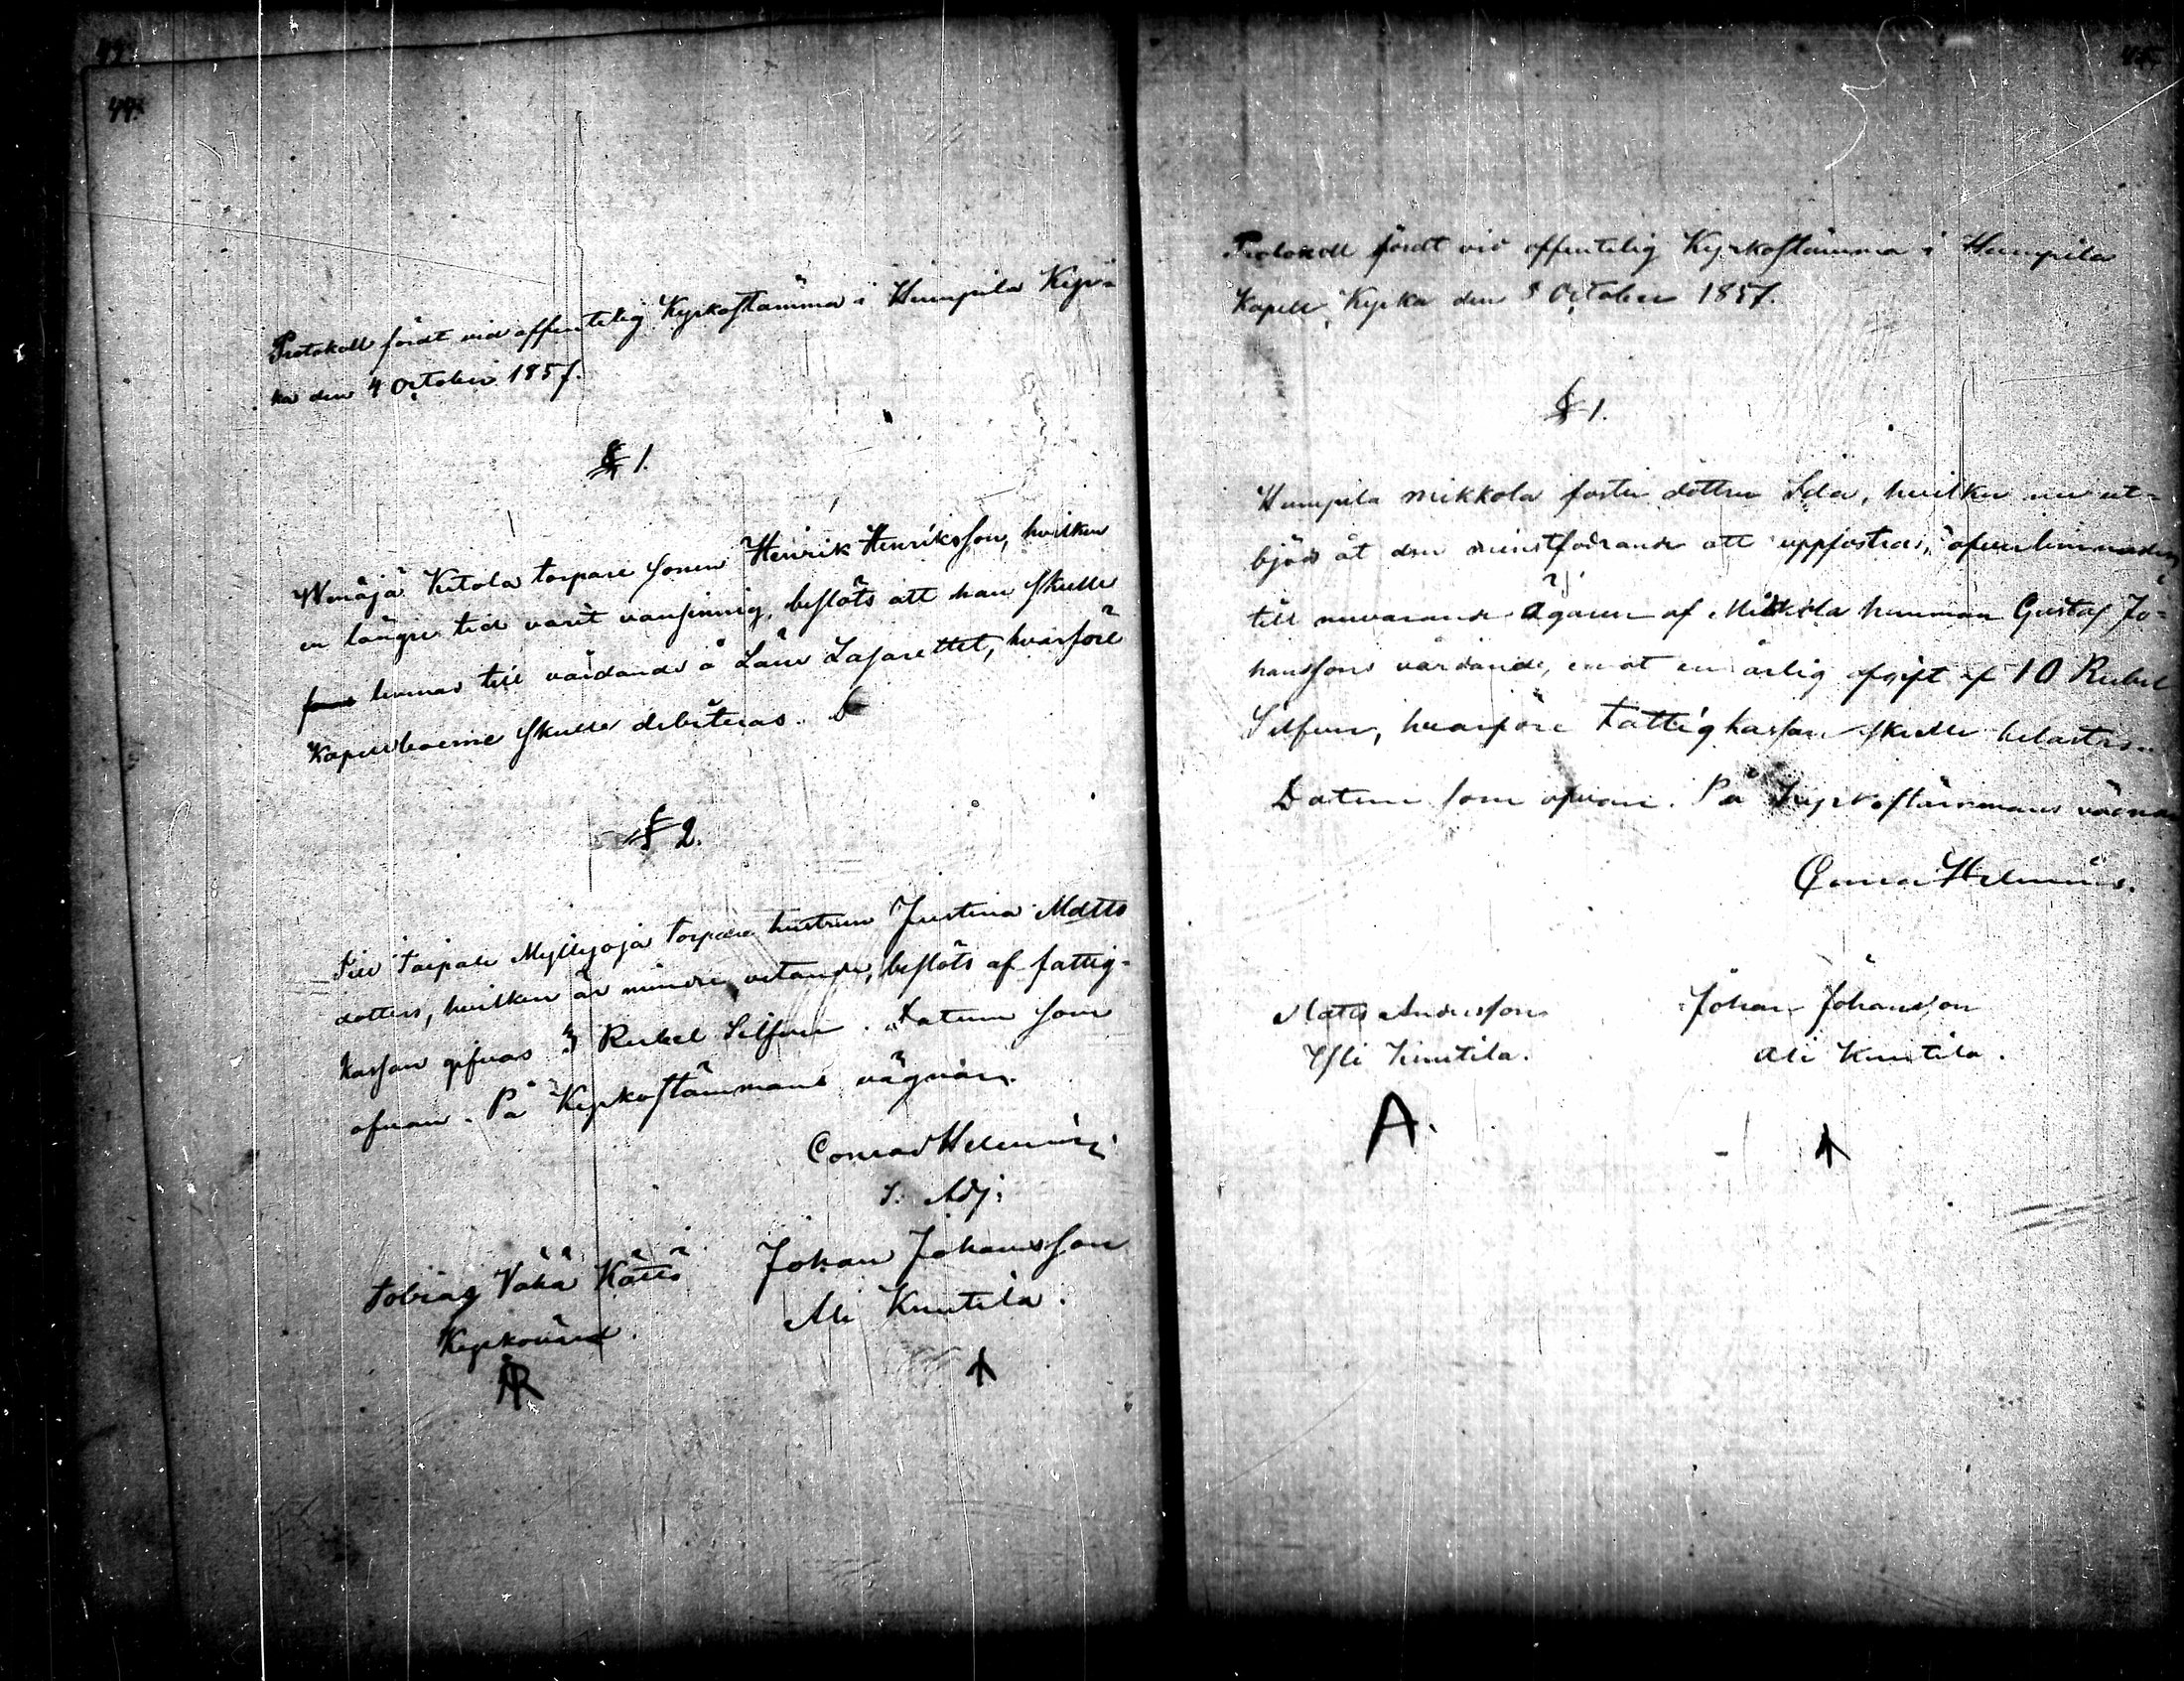 44.
Protokoll fördt vid offentelig Kyrkostämma i Humpila Kyr-
ka den 4 October 1857.
§ 1.
Wenäjä Ketola torpare sonen Henrik Henriksson, hvilken
en längre tid varit vansinnig, beslöts att han skulle
lemnas till vårdande å Läns Lasarettet, hvarföre
Kapellboerne skulle debiteras.
§ 2.
Till Taipale Myllyoja torpare hustrun Justina Matts
dotter, hvilken är mindre vetande, beslöts af fattig-
kassan gifvas 3 Rubel Silfver. Datum som
ofvan. På Kyrkostämmans vägnar.
Conrad Helenius.
S. Adj:
Tobias Vähä Kätis
Kyrkovärd.
Johan Johansson
Ali Kuutila.
45.
Protokoll fördt vid offentelig Kyrkostämma i Humpila
Kapell Kyrka den 5 October 1857.
§ 1.
Humpila Mikkola foster dottren Ida, hvilken nu ut-
bjöds åt den minstfodrande att uppfostras, öfverlemnades
till nuvarande Ägaren af Mikkola hemman Gustaf Jo-
hanssons vårdande, emot en årlig afgift af 10 Rubel
Silfver, hvarföre Fattigkassan skulle belastas.
Datum som ofvan. På Kyrkostämmans vägnar
Conrad Helenius.
Matts Andersson
Yli Kuutila.
A.
Johan Johansson
Ali Kuutila.